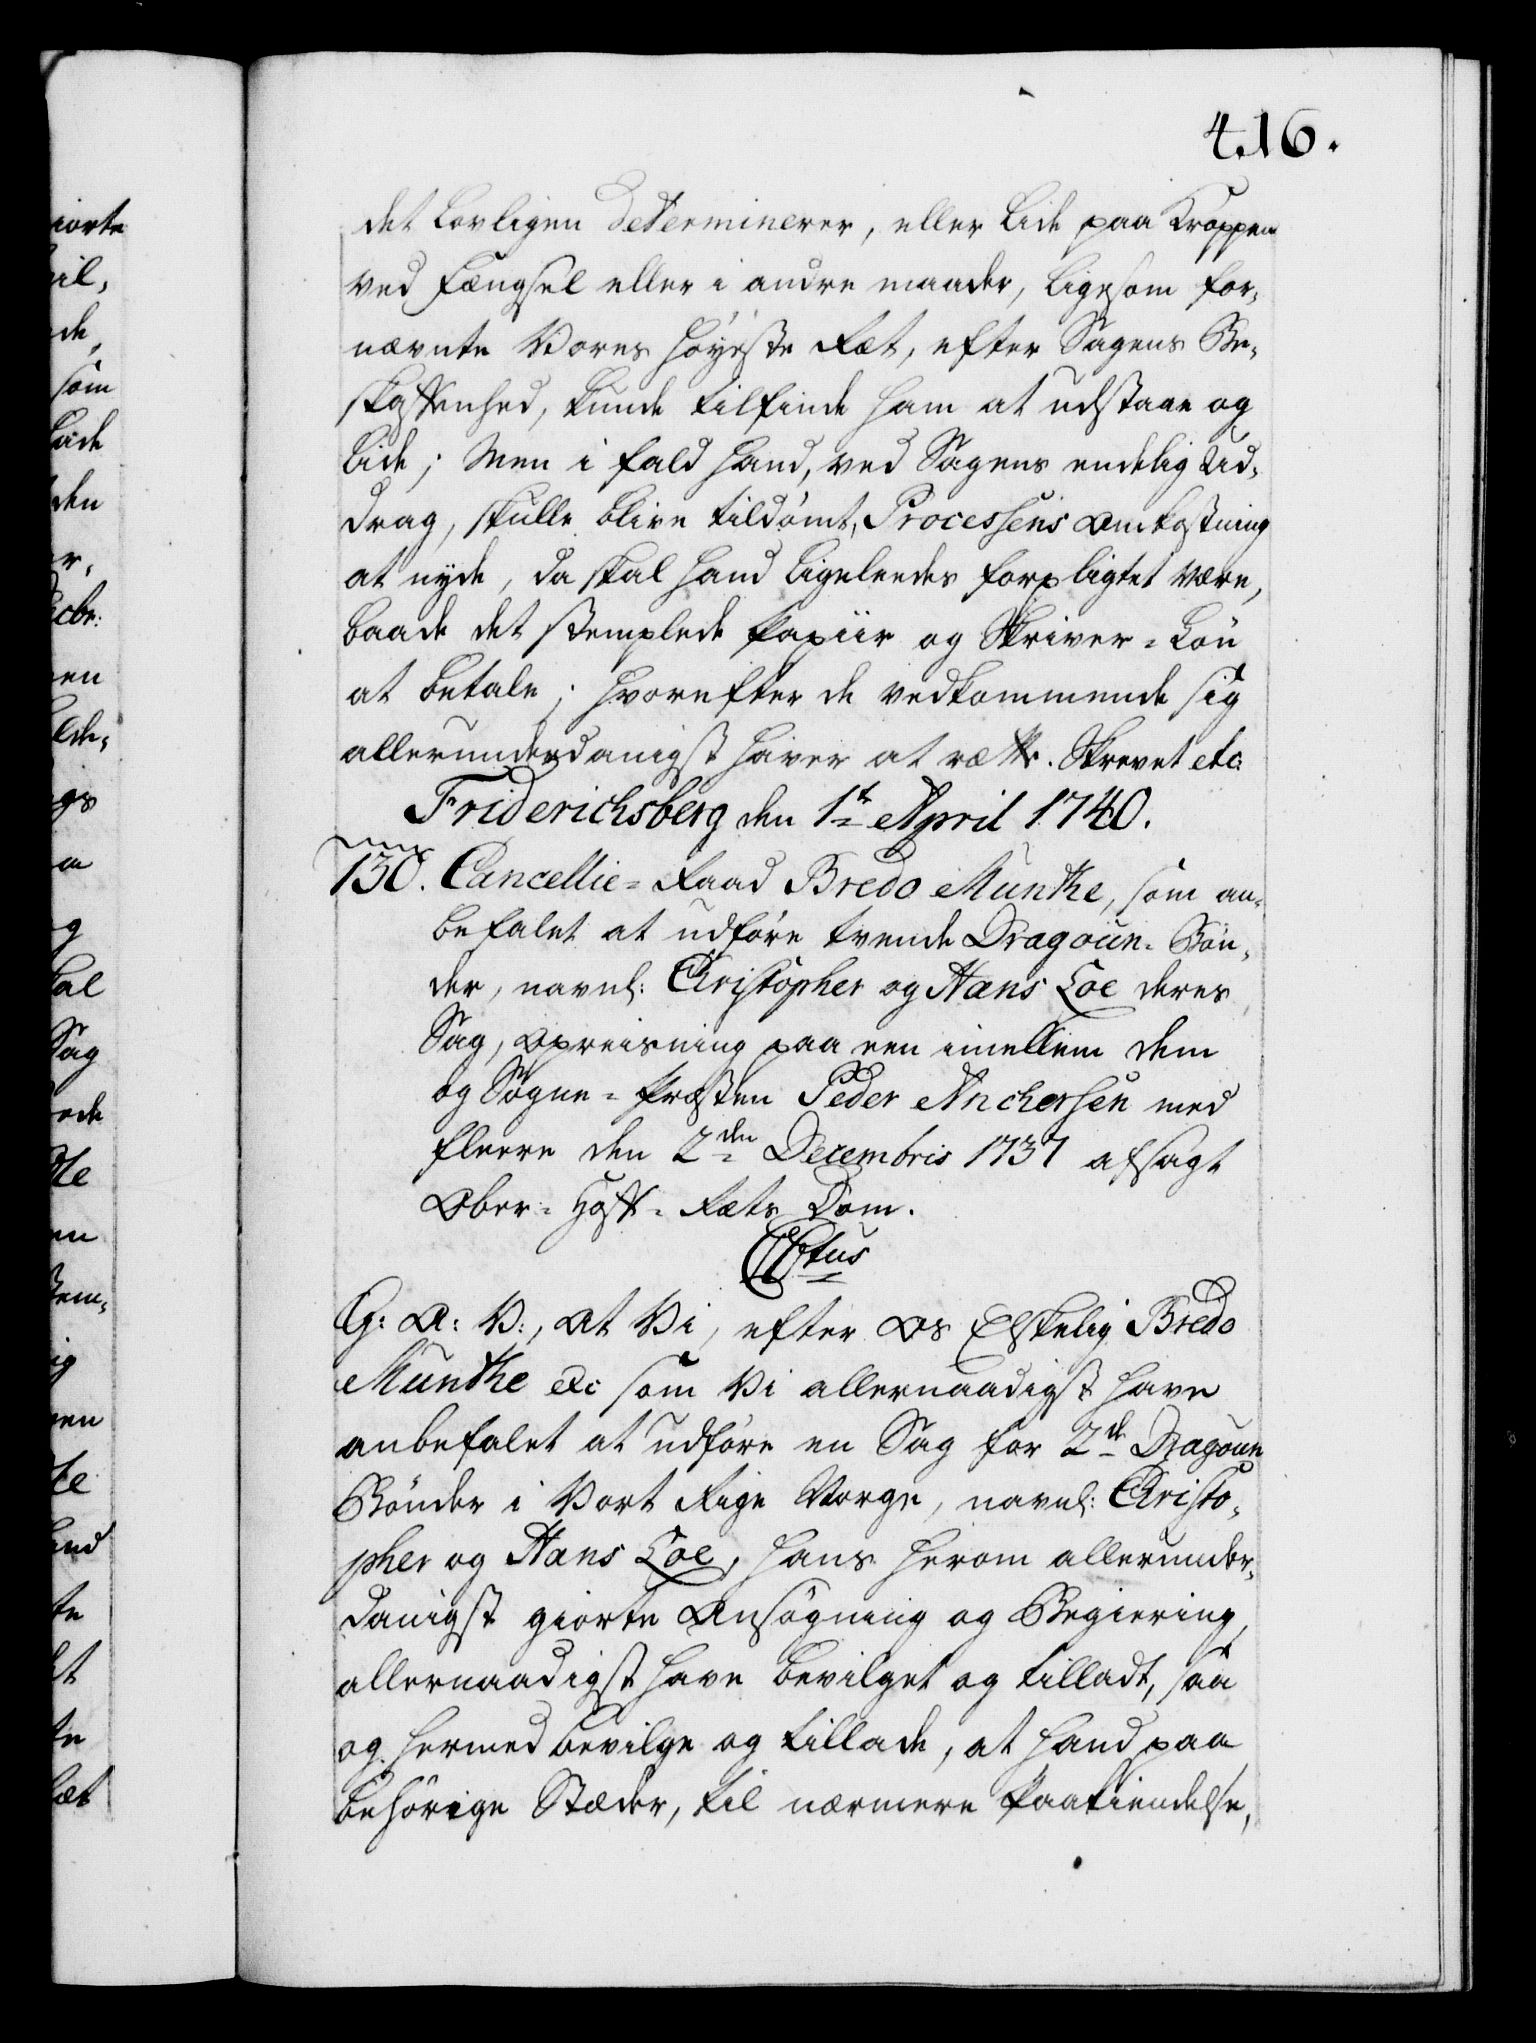 416.
det Lovligen determinerer, eller Lide paa Kroppen
ved Fængsel eller i andre maader, ligesom for-
nævnte Vores Høyeste Ræt, efter Sagens Be-
skaffenhed, kunde tilfinde ham at udstaae og
Lide; Men i fald hand, ved Sagens endelig Ud-
drag, skulle blive tildømt, Processens Omkostning
at nyde, da skal hand ligeleedes forpligtet være,
baade det stemplede Papiir og Skriver-Løn
at betale; hvorefter de vedkommende sig
allerunderdanigst haver at rætte. Skrevet etc
Friderichsberg den 1te April 1740.
130. Cancellie-Raad Bredo Munthe, som an-
befalet at udføre tvende Dragoun-Bøn-
der, navnl: Christopher og Hans Loe deres
Sag, Opreisning paa een imellem dem
og Sogne-Præsten Peder Anchersen med
fleere den 2den Decembris 1737 afsagt
Ober-Hoff-Ræts Dom.
CCtus
G: A: V:, At Vi, efter Os Elskelig Bredo
Munthe etc som Vi allernaadigst have
anbefalet at udføre en Sag for 2de Dragoun
Bønder i Vort Rige Norge, navnl: Christo-
pher og Hans Loe, hans herom allerunder-
danigst giorte Ansøgning og Begiering,
allernaadigst have bevilget og tilladt, saa
og hermed bevilge og tillade, at hand paa
behørige Stæder, til nærmere Paakiendelse,